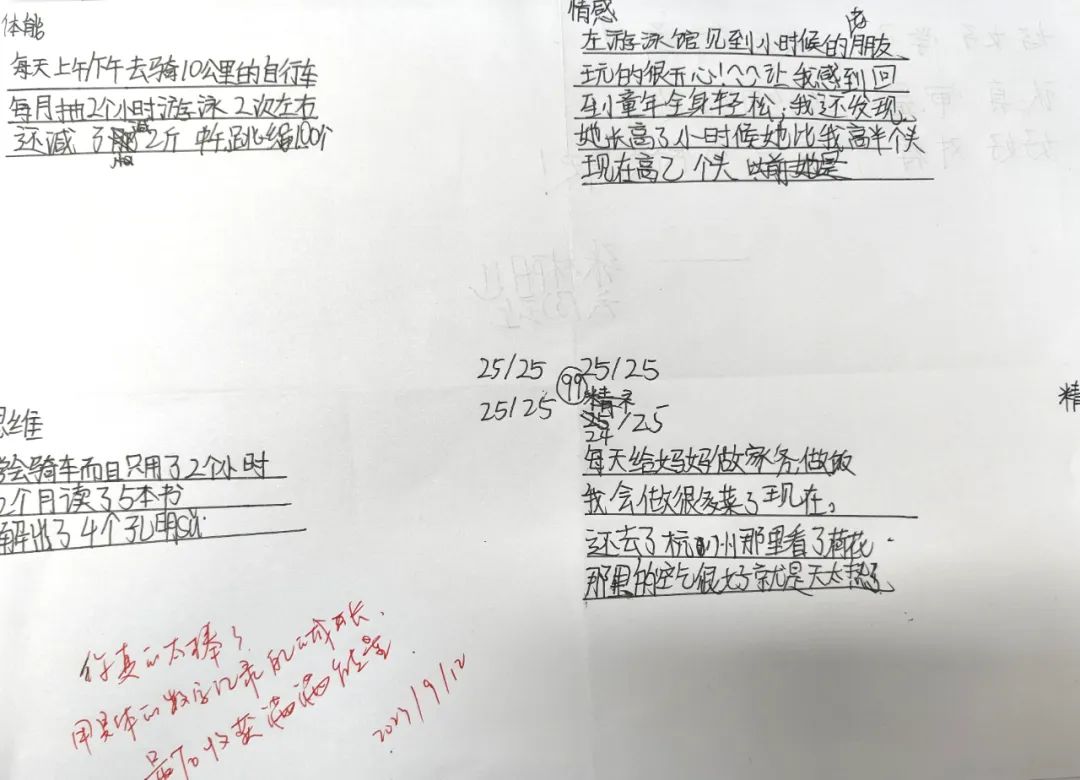 体能
每天上午/下午去骑10公里的自行车
每月抽2个小时游泳2次左右
还减了2斤 中午跳绳100个
情感
在游泳馆见到小时候的朋友
玩的很开心!^^让我感到回
到童年全身轻松,我还发现
她长高了小时候她比我高半个头
现在高乙个头 以前她是
25/25 99 25/25
25/25 精神
24/25
精
思维
学会骑车而且只用了2个小时
2个月读了5本书
解出了4个孔明
每天给妈妈做家务,做饭
我会做很多菜了现在。
还去了杭州那里看了荷花
那里的空气很好就是天太热了
你真的太棒了
用具体的数字记录的成长
最后收获满满能量
2023/9/12